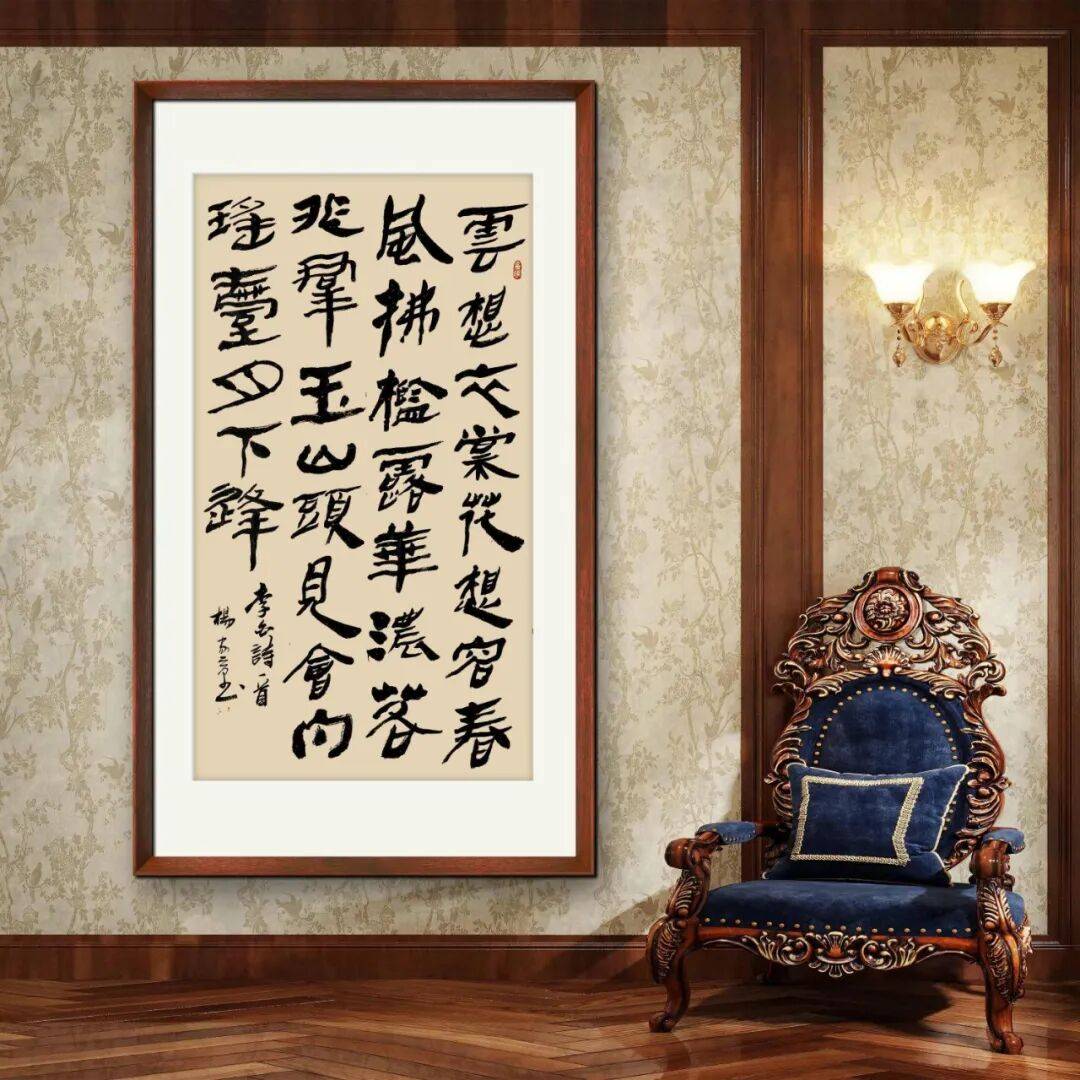 雲想衣裳花想容春
風拂檻露華濃若
非羣玉山頭見會向
瑤臺月下逢
李白詩一首
楊书